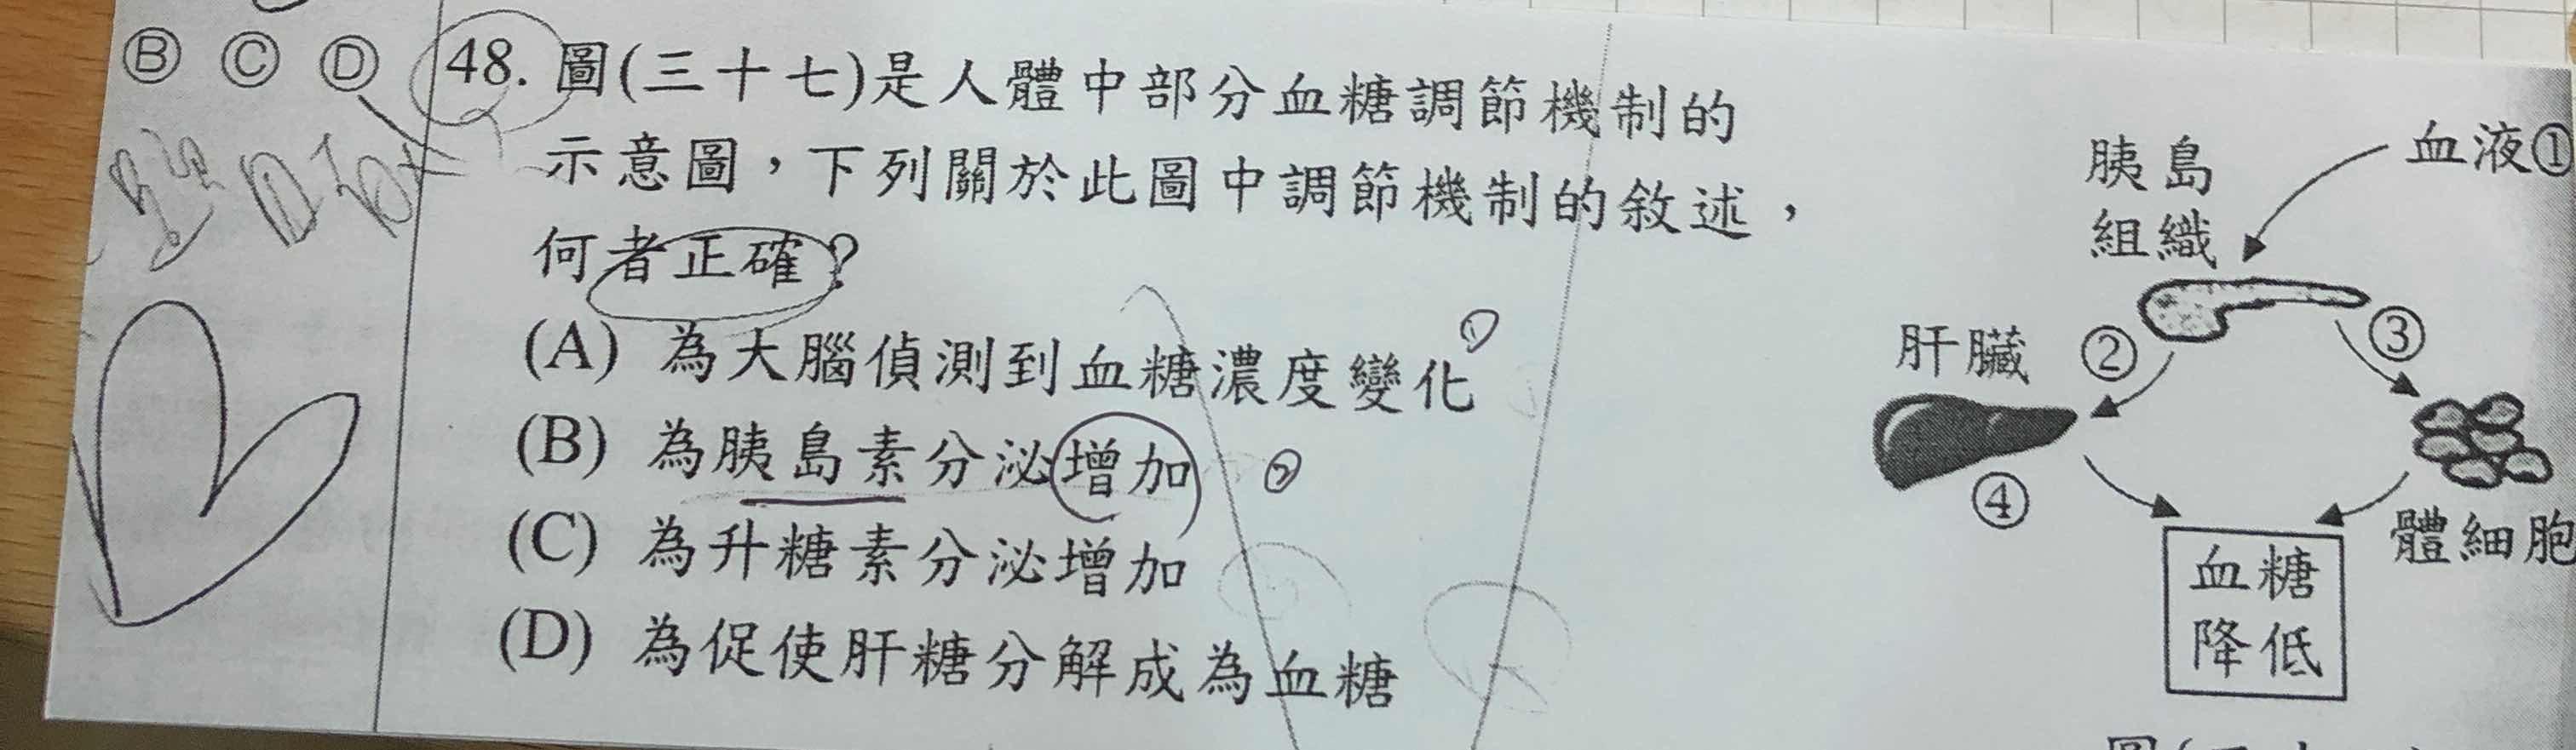 Ⓑ Ⓒ Ⓓ
48. 圖(三十七)是人體中部分血糖調節機制的
示意圖，下列關於此圖中調節機制的敘述，
何者正確？
(A) 為大腦偵測到血糖濃度變化 ①
(B) 為胰島素分泌增加 ②
(C) 為升糖素分泌增加
(D) 為促使肝糖分解成為血糖
血液①
胰島
組織
肝臟
②
③
④
體細胞
血糖
降低